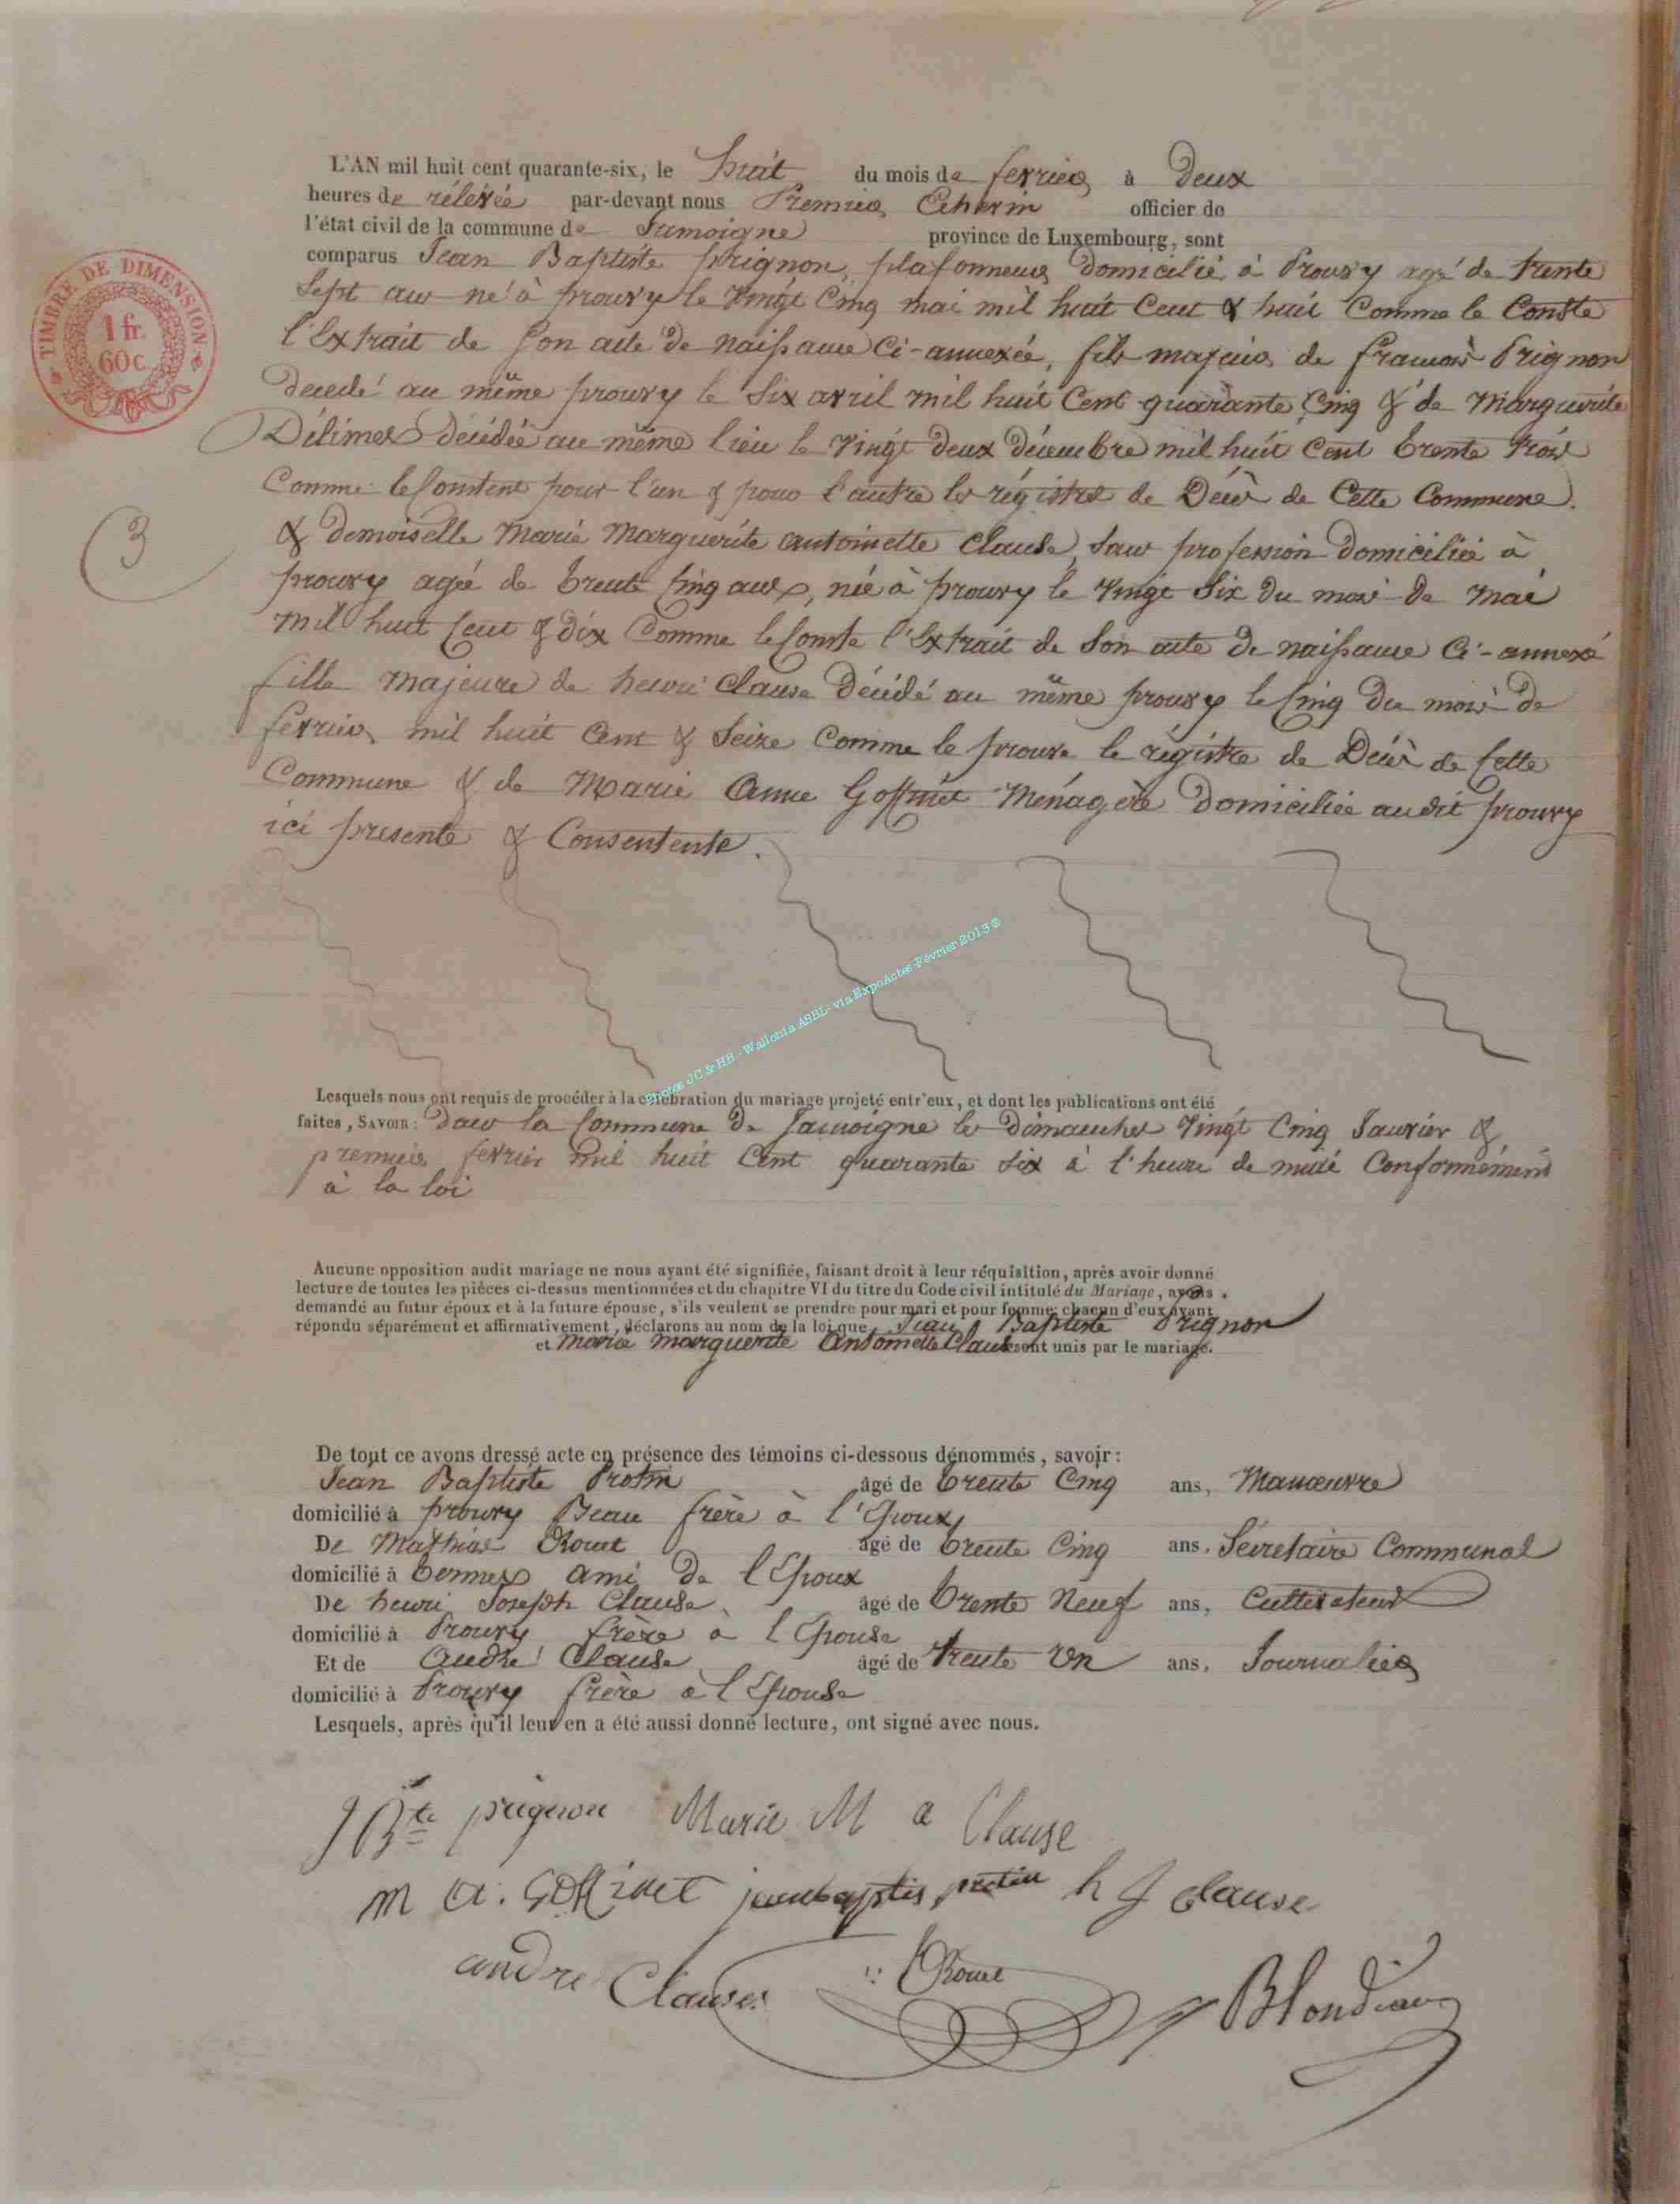 L'AN mil huit cent quarante-six, le huit du mois de fevrier à Deux
heures de rélévée par-devant nous Premier Echevin officier de
l'état civil de la commune de Jamoigne province de Luxembourg, sont
comparus Jean Baptiste prignon, plafonneur Domicilié à Prouvy agé de trente
Sept ans né à prouvy le Vingt Cinq mai mil huit Cent & huit Comme le Conste
l'Extrait de Son acte de naissance Ci-annexée, fils majeur de francois Prignon
decedé au même prouvy le Six avril mil huit Cent quarante Cinq & de Marguerite
Délimes décédée au même lieu le Vingt deux décembre mil huit Cent trente trois
Comme le Constent pour l'un & pour l'autre les régistres de Décès de Cette Commune.
& demoiselle Marie Marguerite antoinette Clause, Sans profession Domiciliée à
prouvy agée de trente Cinq ans, née à prouvy le Vingt Six Du mois De Mai
Mil huit Cent & dix Comme le Conste l'Extrait de Son acte De naissance Ci-annexé
fille Majeure de henri Clause Décédé au même prouvy le Cinq Du mois De
fevrier mil huit Cent & Seize Comme le prouve le régistre de Décès de Cette
Commune & de Marie Anne Goffinet Ménagère Domiciliée audit prouvy
ici présente & Consentente.
TIMBRE DE DIMENSION
1 fr.
60 c.
3
Photos JC & HB - Wallonia ASBL - via ExpoActes - Février 2013 ©
Lesquels nous ont requis de procéder à la célébration du mariage projeté entr'eux, et dont les publications ont été
faites, SAVOIR: Dans la Commune De Jamoigne les Dimanches Vingt Cinq Janvier &
premier fevrier mil huit Cent quarante Six à l'heure de midi Conformément
à la loi
Aucune opposition audit mariage ne nous ayant été signifiée, faisant droit à leur réquisition, après avoir donné
lecture de toutes les pièces ci-dessus mentionnées et du chapitre VI du titre du Code civil intitulé du Mariage, avons
demandé au futur époux et à la future épouse, s'ils veulent se prendre pour mari et pour femme; chacun d'eux ayant
répondu séparément et affirmativement, déclarons au nom de la loi que Jean Baptiste Prignon
et Marie Marguerite Antoinette Clause sont unis par le mariage.
De tout ce avons dressé acte en présence des témoins ci-dessous dénommés, savoir:
Jean Baptiste Protin âgé de trente Cinq ans, Manœuvre
domicilié à prouvy Beau frère à l'Epoux
De Mathias Rouet âgé de trente Cinq ans, Sécretaire Communal
domicilié à termes ami De l'Epoux
De henri Joseph Clause âgé de trente Neuf ans, Cultivateur
domicilié à Prouvy frère à l'Epouse
Et de André Clause âgé de trente Un ans, Journalier
domicilié à Prouvy frère à l'Epouse
Lesquels, après qu'il leur en a été aussi donné lecture, ont signé avec nous.
J Bte prignon Marie M a Clause
M A. Goffinet jeanbaptis protin h J Clause
andre Clause Rouet Blondiaux